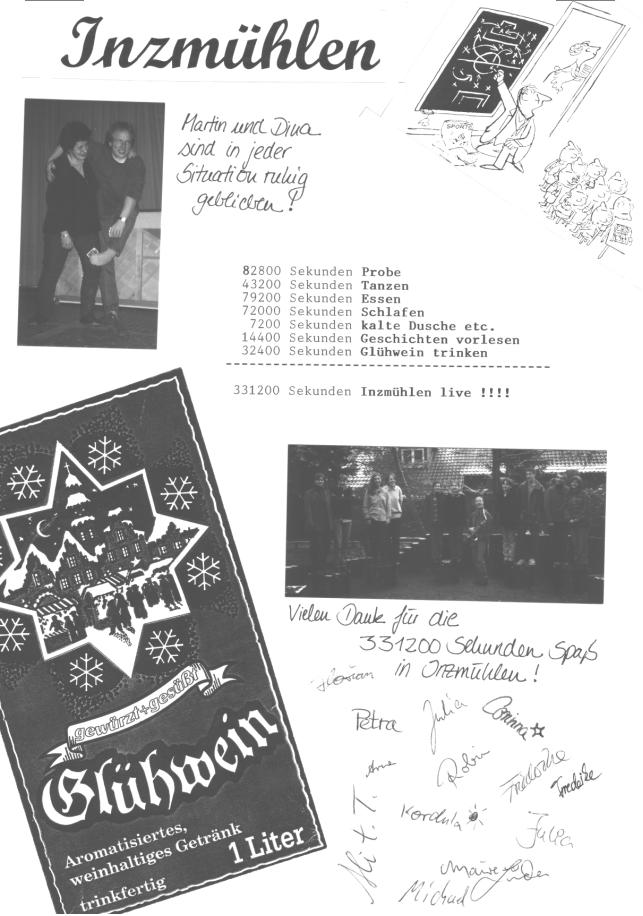 Inzmühlen
SPORTS
Martin und Dina
sind in jeder
Situation ruhig
geblieben!
82800 Sekunden Probe
43200 Sekunden Tanzen
79200 Sekunden Essen
72000 Sekunden Schlafen
7200 Sekunden kalte Dusche etc.
14400 Sekunden Geschichten vorlesen
32400 Sekunden Glühwein trinken
331200 Sekunden Inzmühlen live !!!!
gewürzt+gesüßt
Glühwein
Aromatisiertes,
weinhaltiges Getränk
trinkfertig
1 Liter
Vielen Dank für die
331200 Sekunden Spaß
in Inzmühlen!
Florian
Petra
Julia
Corinna
Arne
Robin
Frederike
Frederike
Kordula
Julia
Michael